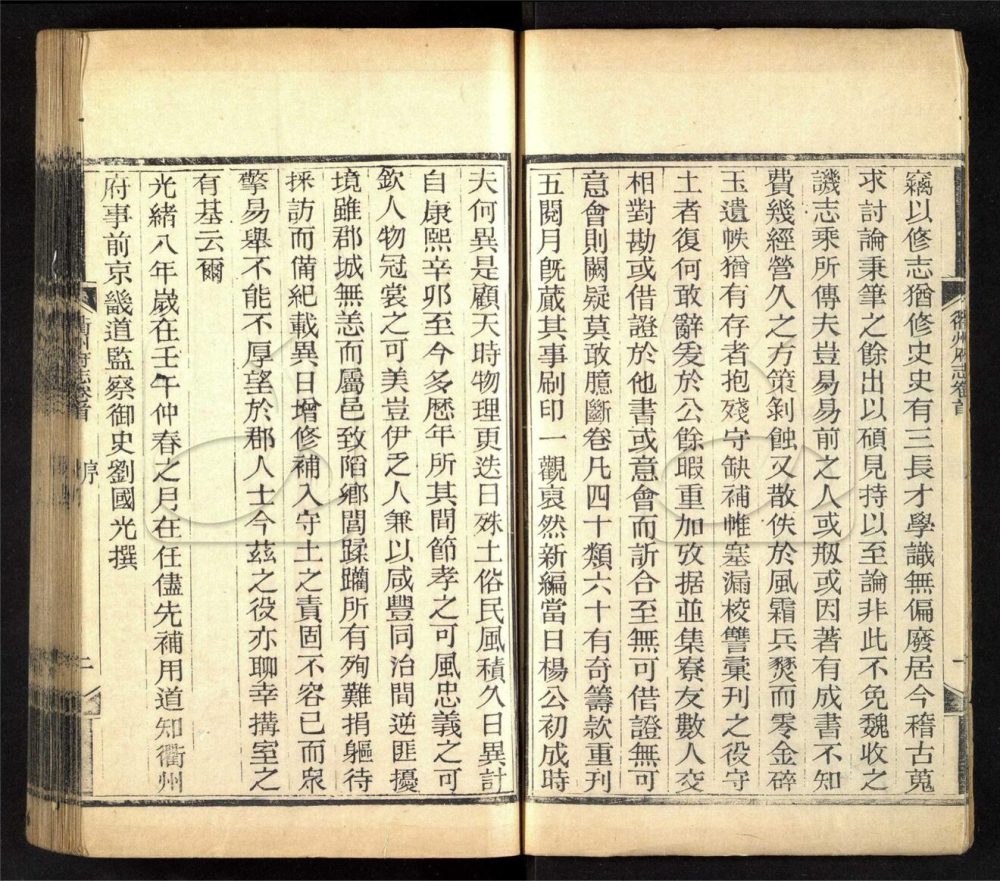 竊以修志猶修史史有三長才學識無偏廢居今稽古蒐
求討論秉筆之餘出以碩見持以至論非此不免魏收之
譏志乘所傳夫豈易易前之人或剏或因著有成書不知
費幾經營久之方策剝蝕又散佚於風霜兵燹而零金碎
玉遺帙猶有存者抱殘守缺補帷塞漏校讐彙刊之役守
土者復何敢辭爰於公餘暇重加攷据並集寮友數人交
相對勘或借證於他書或意會而訢合至無可借證無可
意會則闕疑莫敢臆斷卷凡四十類六十有奇籌款重刊
五閱月旣蕆其事刷印一觀裒然新編當日楊公初成時
衢州府志卷首
一
夫何異是顧天時物理更迭日殊土俗民風積久日異計
自康熙辛卯至今多歷年所其間節孝之可風忠義之可
欽人物冠裳之可美豈伊乏人兼以咸豐同治間逆匪擾
境雖郡城無恙而屬邑致陷鄉閭蹂躪所有殉難捐軀待
採訪而備紀載異日增修補入守土之責固不容已而衆
擎易舉不能不厚望於郡人士今茲之役亦聊幸搆室之
有基云爾
光緒八年歲在壬午仲春之月在任儘先補用道知衢州
府事前京畿道監察御史劉國光撰
衢州府志卷首
序
二